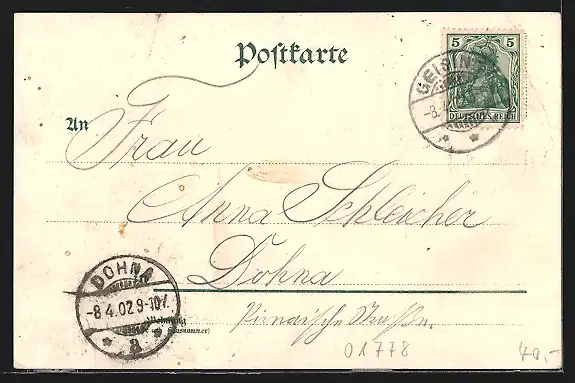 Postkarte
5 5
DEUTSCHES REICH
GEISING
-8.
An
Frau
Anna Schleicher
Dohna
DOHNA
-8 4.02 9-10V.
a
Wohnung
Pirnaische Strasse.
01778
40,-